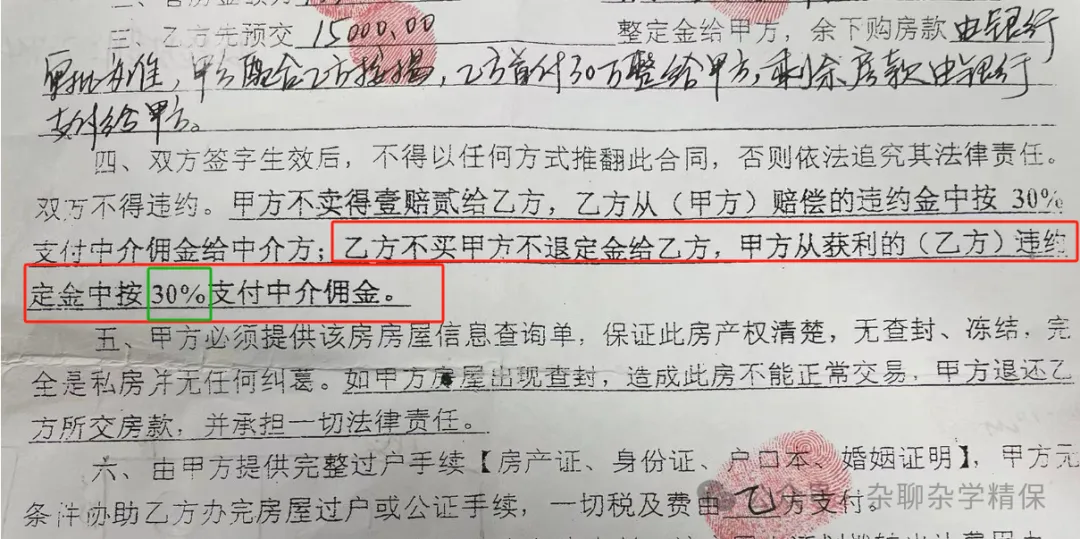 三、乙方先预交 15000.00 整定金给甲方，余下购房款由银行
审批为准，甲方配合乙方按揭，乙方首付30万整给甲方，剩余房款由银行
支付给甲方。
四、双方签字生效后，不得以任何方式推翻此合同，否则依法追究其法律责任。
双方不得违约。甲方不卖得壹赔贰给乙方，乙方从（甲方）赔偿的违约金中按 30%
支付中介佣金给中介方；乙方不买甲方不退定金给乙方，甲方从获利的（乙方）违约
定金中按 30%支付中介佣金。
五、甲方必须提供该房房屋信息查询单，保证此房产权清楚，无查封、冻结，完
全是私房并无任何纠葛。如甲方房屋出现查封，造成此房不能正常交易，甲方退还乙
方所交房款，并承担一切法律责任。
六、由甲方提供完整过户手续【房产证、身份证、户口本、婚姻证明】，甲方无
条件协助乙方办完房屋过户或公证手续，一切税及费由 乙 方支付。
杂聊杂学精保